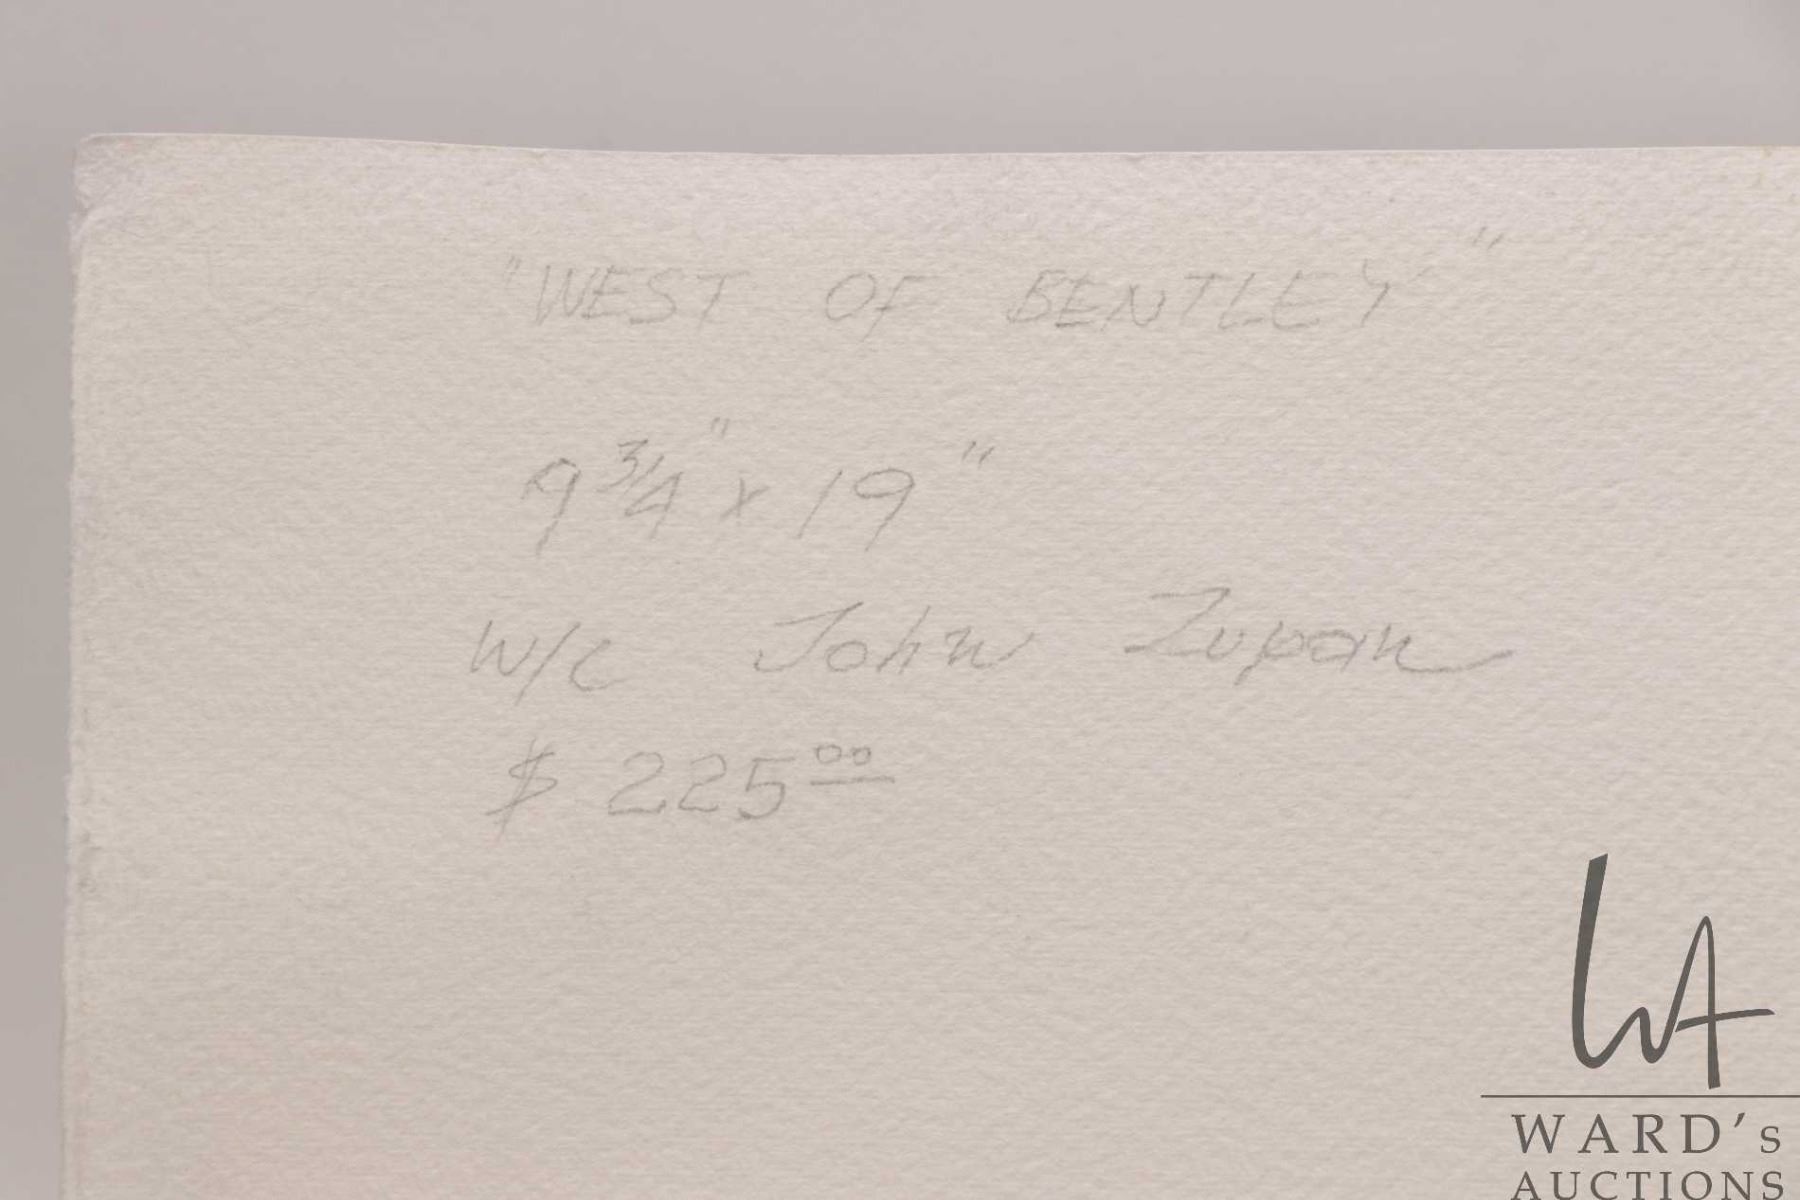 "WEST OF BENTLEY"
9 3/4" x 19"
W/C John Zupan
$ 225.00
WA
WARD's
AUCTIONS